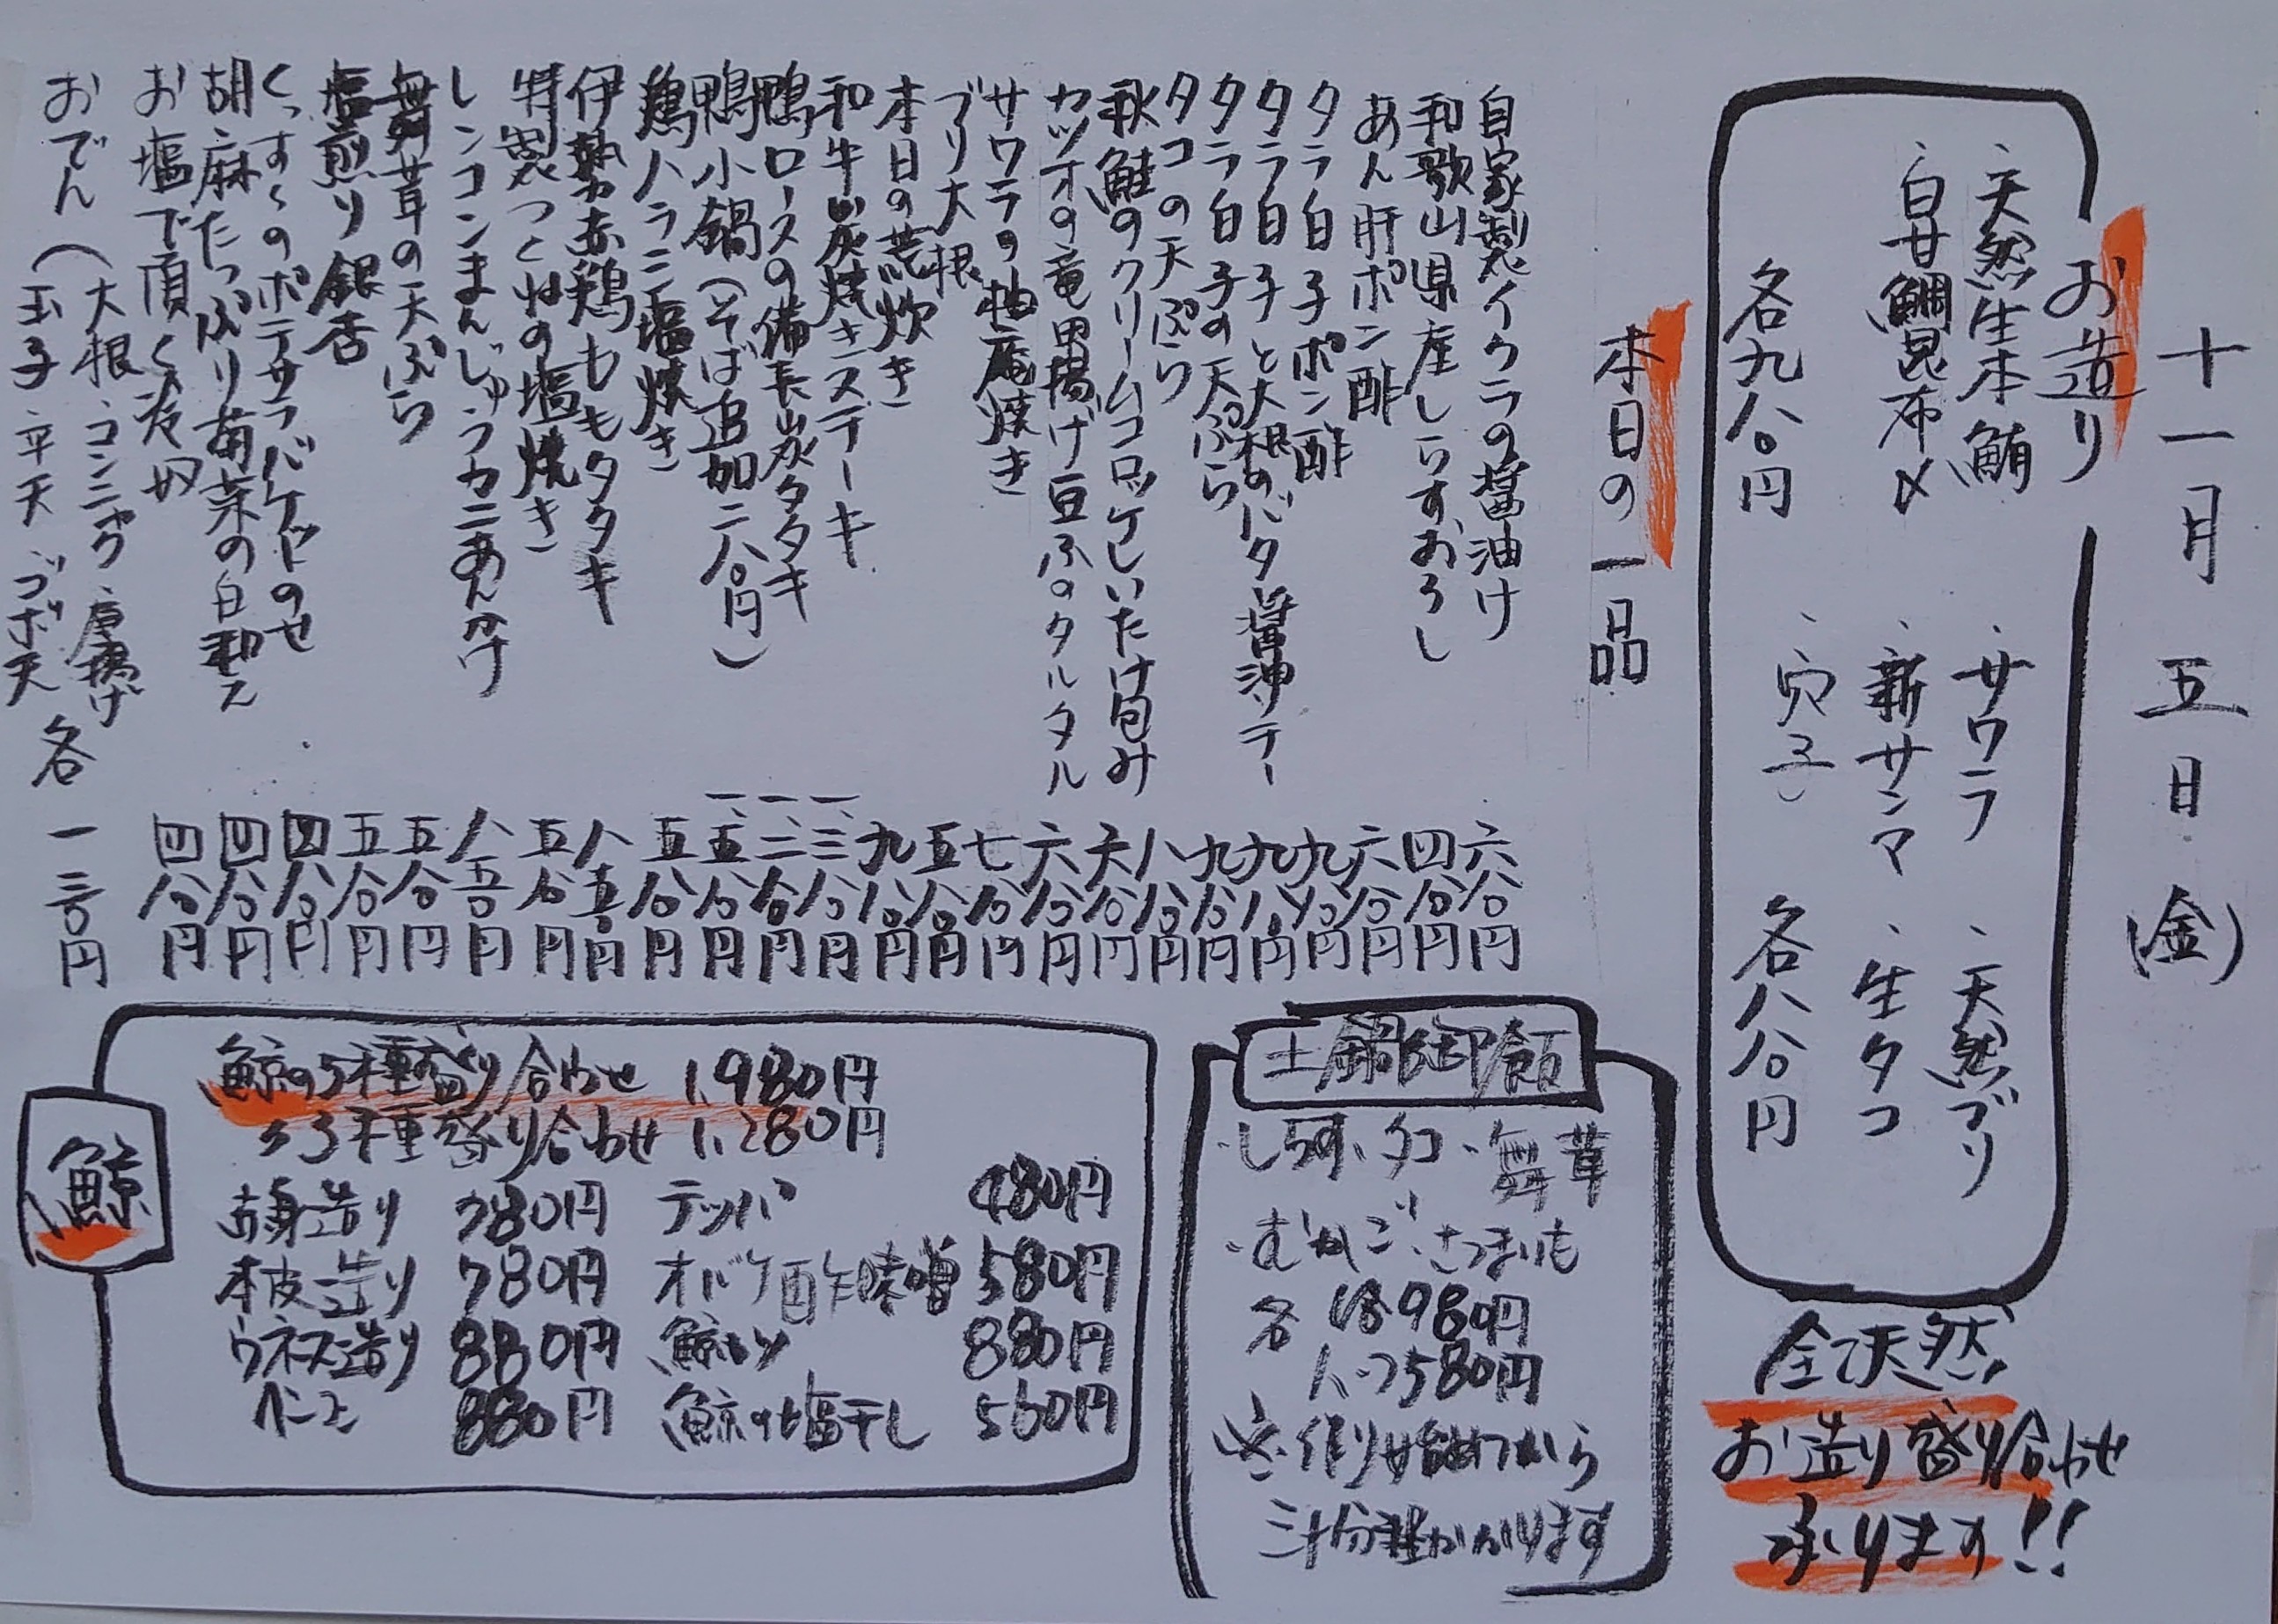 十一月五日(金)
お造り
・天然生本鮪 ・サワラ ・天然ブリ
・白甘鯛昆布〆 ・新サンマ ・生タコ
・穴子
各九八〇円 各八八〇円
全て天然
お造り盛り合わせ
承ります!!
本日の一品
自家製イクラの醤油け 六八〇円
和歌山県産しらすおろし 四八〇円
あん肝ポン酢 六八〇円
タラ白子ポン酢 九八〇円
タラ白子と大根のバタ醤油ソテー 九八〇円
タラ白子の天ぷら 九八〇円
タコの天ぷら 八八〇円
秋鮭のクリームコロッケしいたけ包み 六八〇円
カツオの竜田揚げ豆ふのタルタル 六八〇円
サワラの柚庵焼き 七八〇円
ブリ大根 五八〇円
本日の荒炊き 九八〇円
和牛炭焼きステーキ 一、三八〇円
鴨ロースの備長炭タタキ 一、二八〇円
鴨小鍋(そば追加二八〇円) 一、五八〇円
鶏ハラミ塩焼き 五八〇円
伊勢赤鶏ももタタキ 八五〇円
特製つくねの塩焼き 五八〇円
レンコンまんじゅうカニあんかけ 八五〇円
舞茸の天ぷら 五八〇円
塩煎り銀杏 五八〇円
くっすくのポテサラバケットのせ 四八〇円
胡麻たっぷり菊菜の白和え 四八〇円
お塩で頂く冷奴 四八〇円
おでん(大根・コンニャク・厚揚げ
玉子 平天 ゴボ天 各一三〇円
土鍋御飯
・しらす、タコ、舞茸
・むかご、さつまいも
各 1合980円
ハーフ580円
※作り始めてから
三十分程かかります
鯨
鯨の5種盛り合わせ 1,980円
〃3種盛り合わせ 1,280円
赤身造り 780円 テッパ 480円
本皮造り 780円 オバケ酢味噌 580円
ウネス造り 880円 鯨カツ 880円
ベーコン 880円 鯨の塩干し 560円